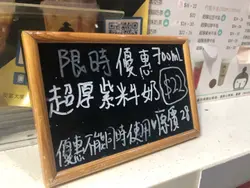 限時優惠700ml
超厚紫米牛奶 $22
優惠不能同時使用 原價28